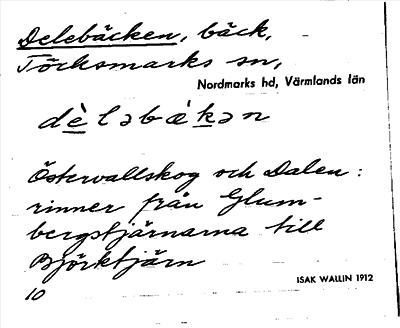 Delebäcken, bäck,
Töcksmarks sn,
Nordmarks hd, Värmlands län
dèləbǽkən
Östervallskog och Dalen:
rinner från Glum-
bergstjärnarna till
Björktjärn
ISAK WALLIN 1912
10